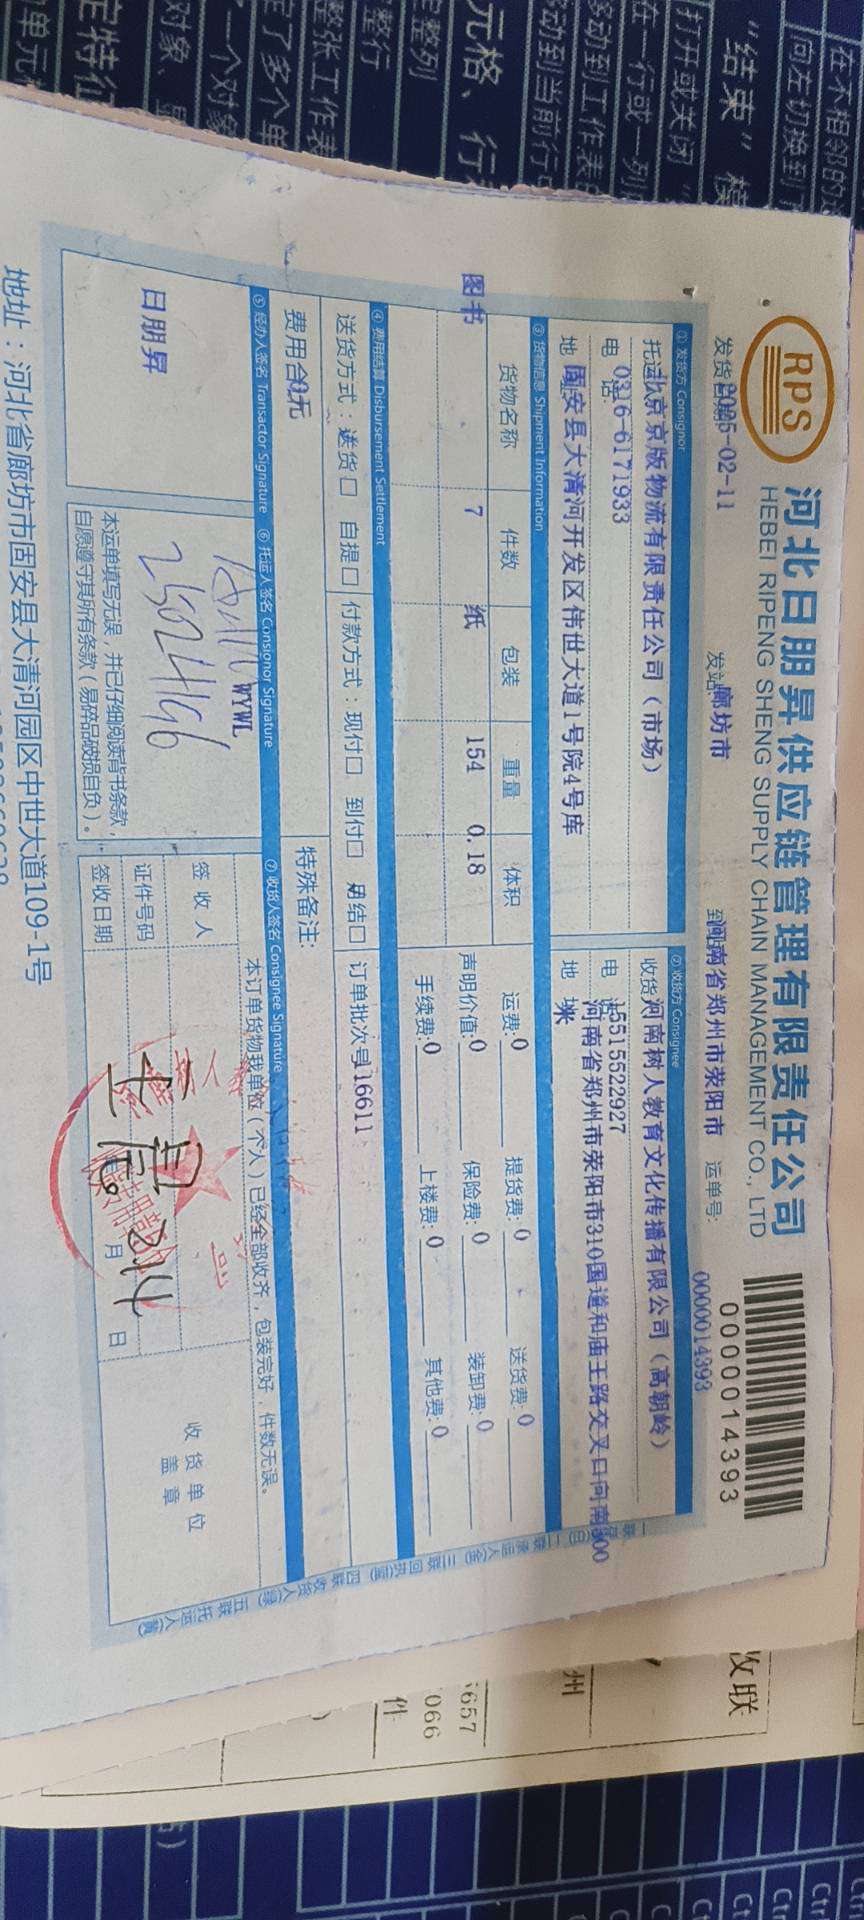 RPS
河北日朋昇供应链管理有限责任公司
HEBEI RIPENG SHENG SUPPLY CHAIN MANAGEMENT CO., LTD
0000014393
发货日期2025-02-11
发站:廊坊市
到站:河南省郑州市荥阳市
运单号:
0000014393
① 发货方 Consignor
托运北京京版物流有限责任公司（市场）
电话0316-6171933
地固安县大清河开发区伟世大道1号院4号库
② 收货方 Consignee
收货河南树人教育文化传播有限公司（高朝岭）
电话15515522927
地河南省郑州市荥阳市310国道和庙王路交叉口向南300
米
③ 货物信息 Shipment Information
货物名称 件数 包装 重量 体积
图书 7 纸 154 0.18
运费:0 提货费:0 送货费:0
声明价值:0 保险费:0 装卸费:0
手续费:0 上楼费:0 其他费:0
④ 费用结算 Disbursement Settlement
送货方式：送货□ 自提□ 付款方式：现付□ 到付□ 月结□ 订单批次号16611
费用合0元
特殊备注：
⑤ 经办人签名 Transactor Signature
⑥ 托运人签名 Consionor Signature
⑦ 收货人签名 Consignee Signature
日朋昇
WYWL
本运单填写无误，并已仔细阅读背书条款，
自愿遵守其所有条款（易碎品破损自负）。
本订单货物我单位（个人）已经全部收齐，包装完好，件数无误。
签收人
证件号码
签收日期
月 日
2.14
收货单位
盖章
地址：河北省廊坊市固安县大清河园区中世大道109-1号
收联
州
657
066
件
在不相邻的
向左切换到
“结束”模
打开或关闭
在一行或一列
移动到工作表
动到当前行
元格、行
整列
整行
整张工作表
定了多个单
一个对象
对象，
定特征
单元格